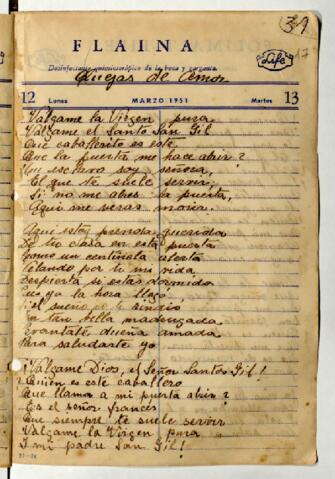 31
17
FLAINA
Desinfectante quimioterápico de la boca y garganta.
Life
Quejas de Amor
12 Lunes MARZO 1951 Martes 13
Válgame la Virgen pura
Válgame el Santo San Gil
Que caballerito es este
Que la puerta me hace abrir?
Tu esclavo soy señora,
El que te suele servir
Si no me abres la puerta,
Aqui me veras morir.
Aqui estoy prenda querida
De tu casa en esta puerta
Como un centinela alerta
Cuidando por ti mi vida
Despierta si estas dormida
Que ya la hora llegó
Si el sueño te rindió
La madrugada
Levantate dueña amada
Para saludarte yo
¡Válgame Dios, el Señor Santos Gil!
¿Quien es este caballero
Que llama a mi puerta abrir?
Es el señor frances
Que siempre te suele servir
Válgame la Virgen pura
I mi padre San Gil!